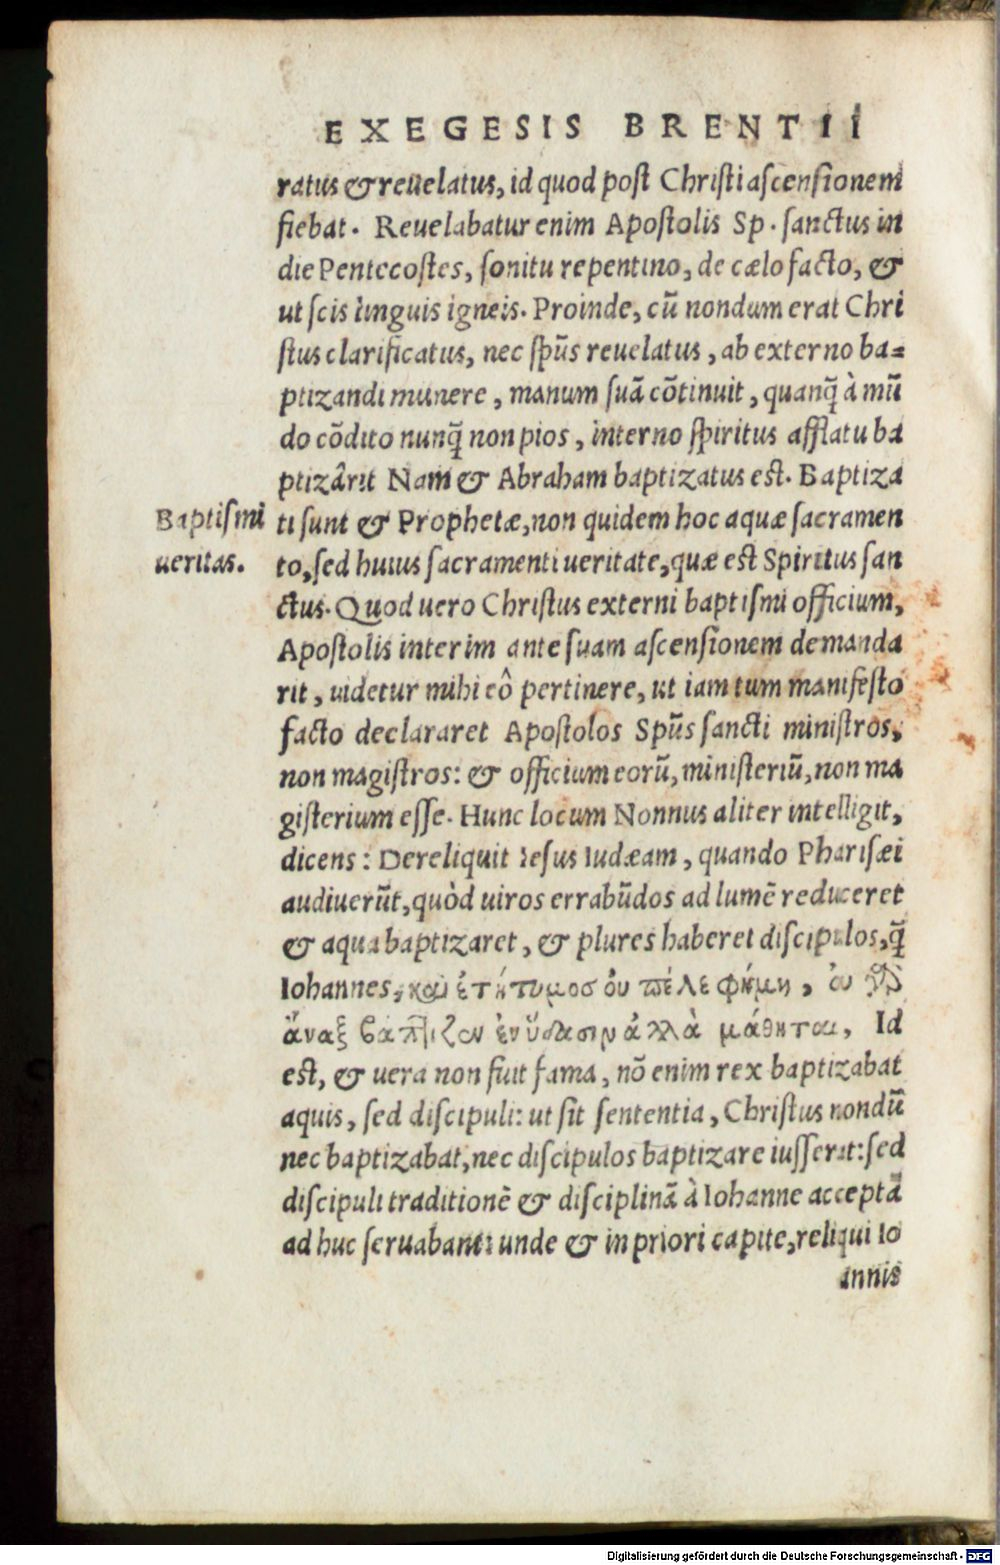 EXEGESIS BRENTII
ratus & reuelatus, id quod post Christi ascensionem
fiebat. Reuelabatur enim Apostolis Sp. sanctus in
die Pentecostes, sonitu repentino, de cælo facto, &
ut scis linguis igneis. Proinde, cũ nondum erat Chri
stus clarificatus, nec spũs reuelatus, ab externo ba=
ptizandi munere, manum suã cõtinuit, quanq̃ à mũ
do cõdito nunq̃ non pios, interno spiritus afflatu ba
ptizârit Nam & Abraham baptizatus est. Baptiza
Baptismi
ueritas.
ti sunt & Prophetæ, non quidem hoc aquæ sacramen
to, sed huius sacramenti ueritate, quæ est Spiritus san
ctus. Quod uero Christus externi baptismi officium,
Apostolis interim ante suam ascensionem demanda
rit, uidetur mihi eô pertinere, ut iam tum manifesto
facto declararet Apostolos Spũs sancti ministros,
non magistros: & officium eorũ, ministeriũ, non ma
gisterium esse. Hunc locum Nonnus aliter intelligit,
dicens: Dereliquit Iesus Iudæam, quando Pharisæi
audiuerũt, quòd uiros errabũdos ad lumẽ reduceret
& aqua baptizaret, & plures haberet discipulos, q̃
Iohannes, καὶ ἐτήτυμος οὐ πέλε φήμη, οὐ γὰρ
ἄναξ βαπτίζον ἐν ὕδασιν ἀλλὰ μάθηται, Id
est, & uera non fuit fama, nõ enim rex baptizabat
aquis, sed discipuli: ut sit sententia, Christus nondũ
nec baptizabat, nec discipulos baptizare iusserit: sed
discipuli traditionẽ & disciplinã à Iohanne acceptã
ad huc seruabant: unde & in priori capite, reliqui Io
annis
Digitalisierung gefördert durch die Deutsche Forschungsgemeinschaft - DFG